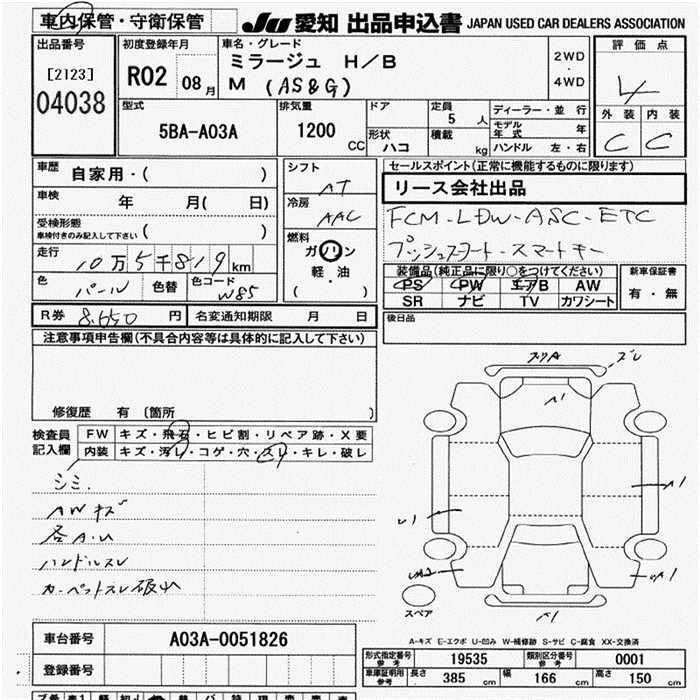 車内保管・守衛保管
JU 愛知 出品申込書 JAPAN USED CAR DEALERS ASSOCIATION
出品番号
[2123]
04038
初度登録年月
R02 08月
車名・グレード
ミラージュ H/B
M (AS&G)
2WD
・
4WD
評価点
4
外装 内装
C C
型式
5BA-A03A
排気量
1200
CC
ドア
形状
ハコ
定員
5 人
積載
kg
ディーラー・並行
モデル年式 年
ハンドル 左・右
車歴
自家用・( )
車検
年 月( 日)
受検形態
車検付きのみ記入して下さい ( )
走行
10万5千819km
色
パール
色替
色コード
W85
シフト
AT
冷房
AAC
燃料
ガソリン
軽・油
( )
セールスポイント(正常に機能するものに限ります)
リース会社出品
FCM-LDW-ASC-ETC
プッシュスタート・スマートキー
装備品(純正品に限り○をつけてください)
PS PW エアB AW
SR ナビ TV カワシート
新車保証書
有・無
R券 8,650円
名変通知期限 月 日
後日品
注意事項申告欄(不具合内容等は具体的に記入して下さい)
修復歴 有 〔箇所 〕
検査員
記入欄
FW キズ・飛石・ヒビ割・リペア跡・X要
内装 キズ・汚レ・コゲ・穴・スレ・キレ・破レ
シミ.
AWキズ
各A.U
ハンドルスレ
カーペットスレ破れ
スリA
ズレ
A1
A1
U1
UA2
A1
スペア
A-キズ E-エクボ U-凹み W-補修跡 S-サビ C-腐食 XX-交換済
車台番号
A03A-0051826
登録番号
形式指定番号
参考
19535
類別区分番号
参考
0001
車庫証明用
参考
長さ 385 cm
幅 166 cm
高さ 150 cm